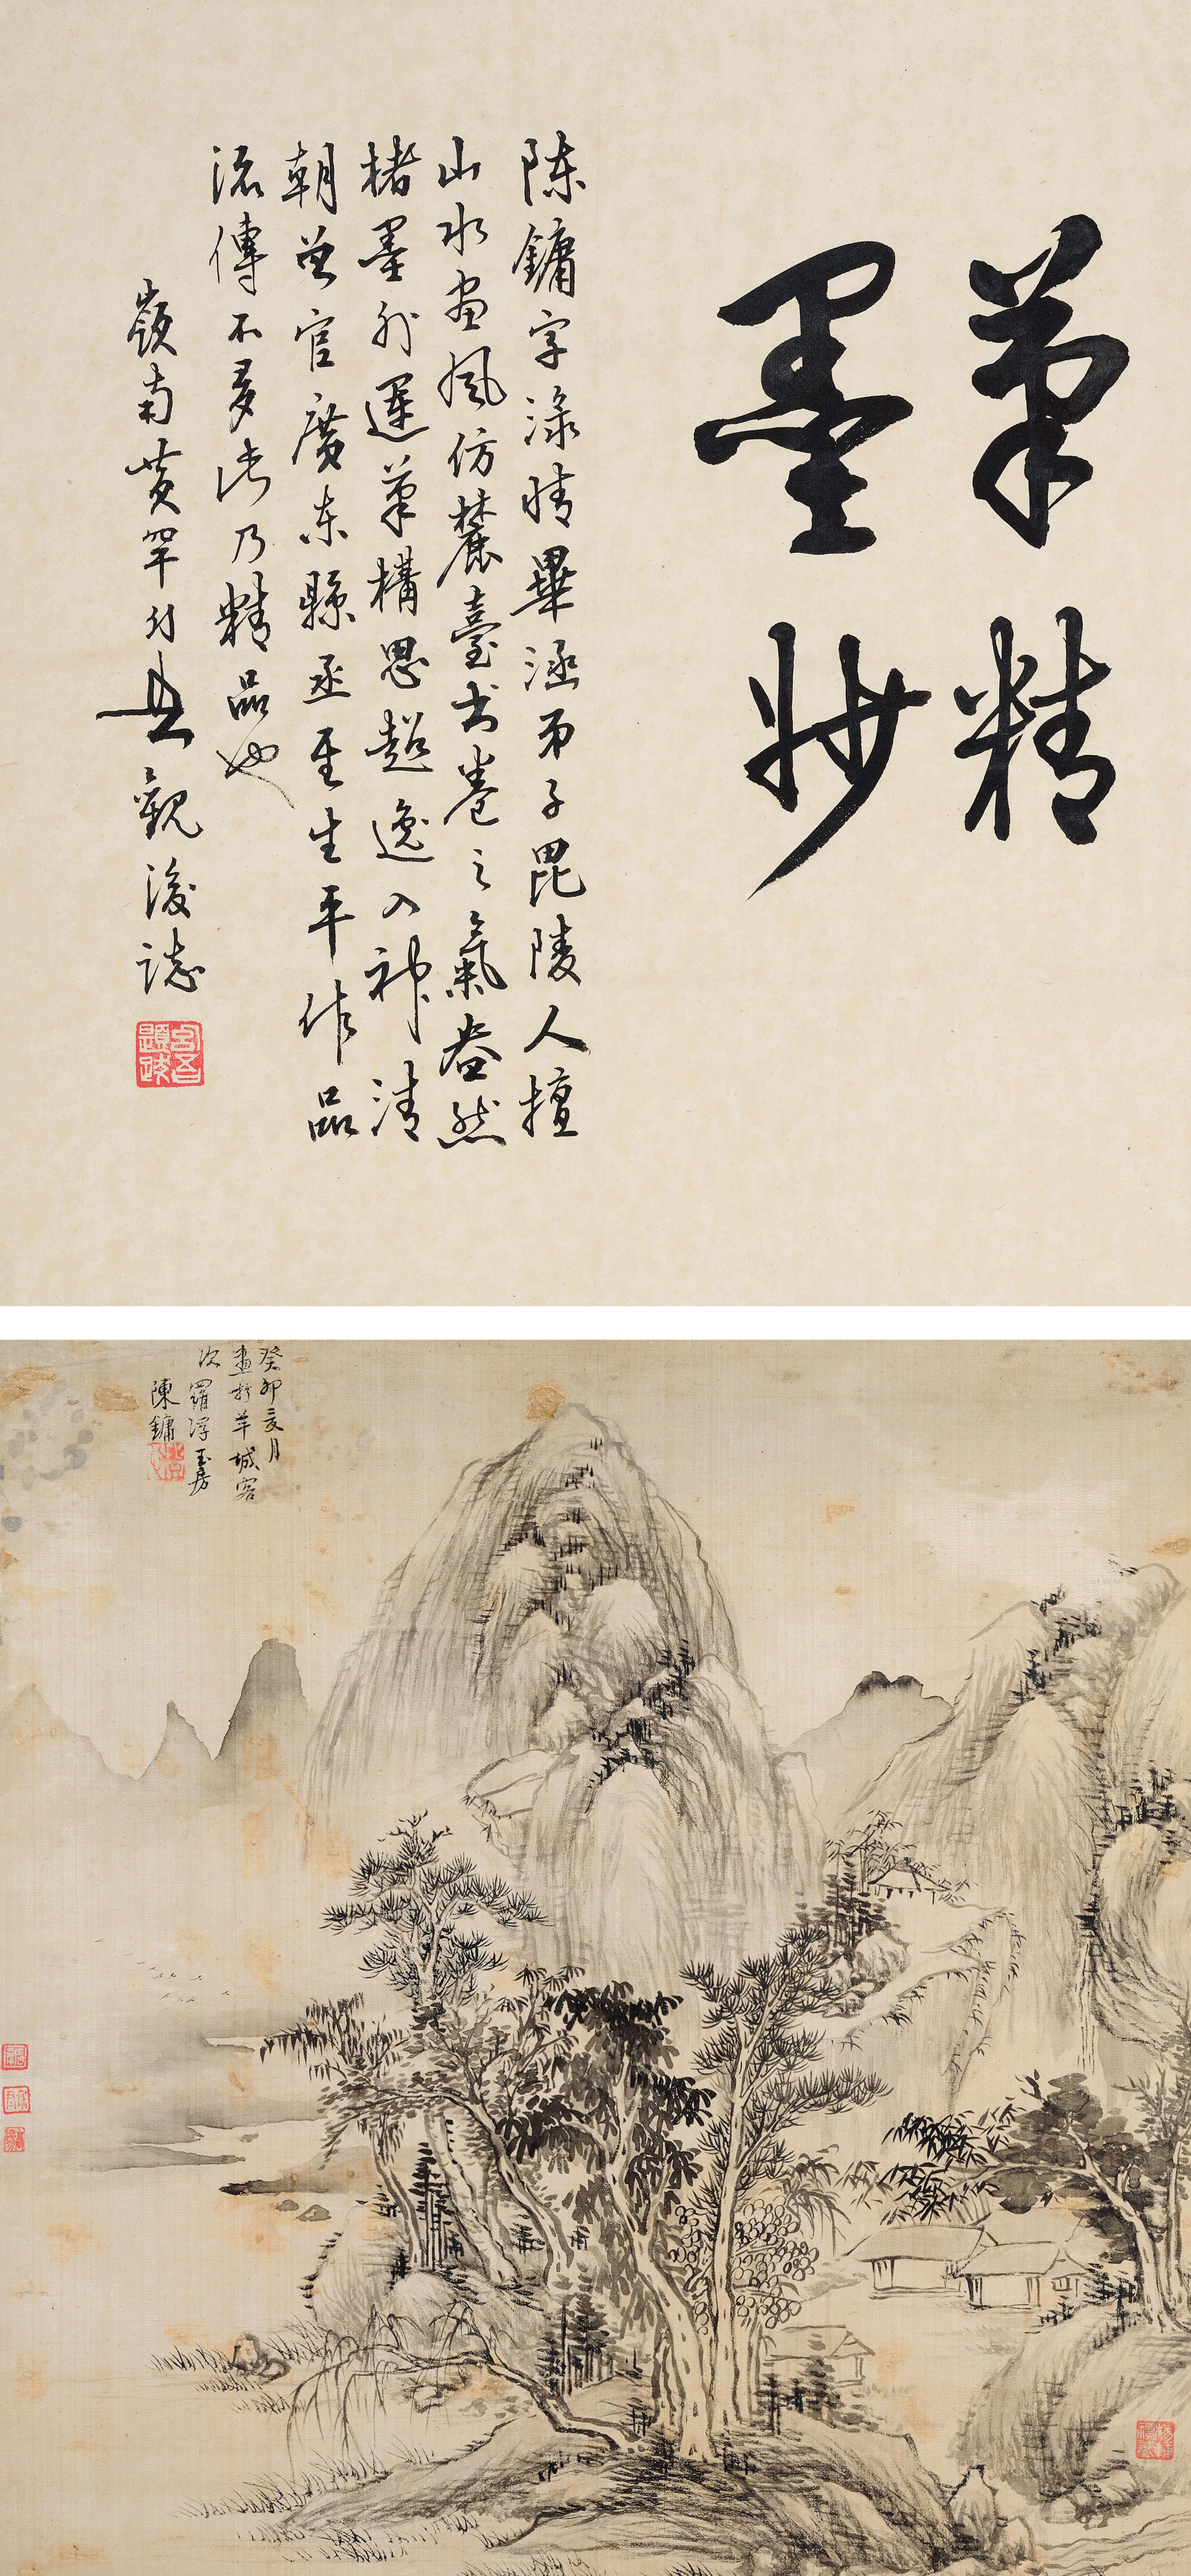 筆精
墨妙
陳鏞字淥晴畢涵弟子毘陵人擅
山水畫風仿麓臺書卷之氣盎然
楮墨外運筆構思超逸入神清
朝曾官廣東縣丞至生平作品
流傳不多此乃精品也
嶺南黄罕付典觀後誌
癸卯夏月
畫於羊城客
次羅浮玉房
陳鏞